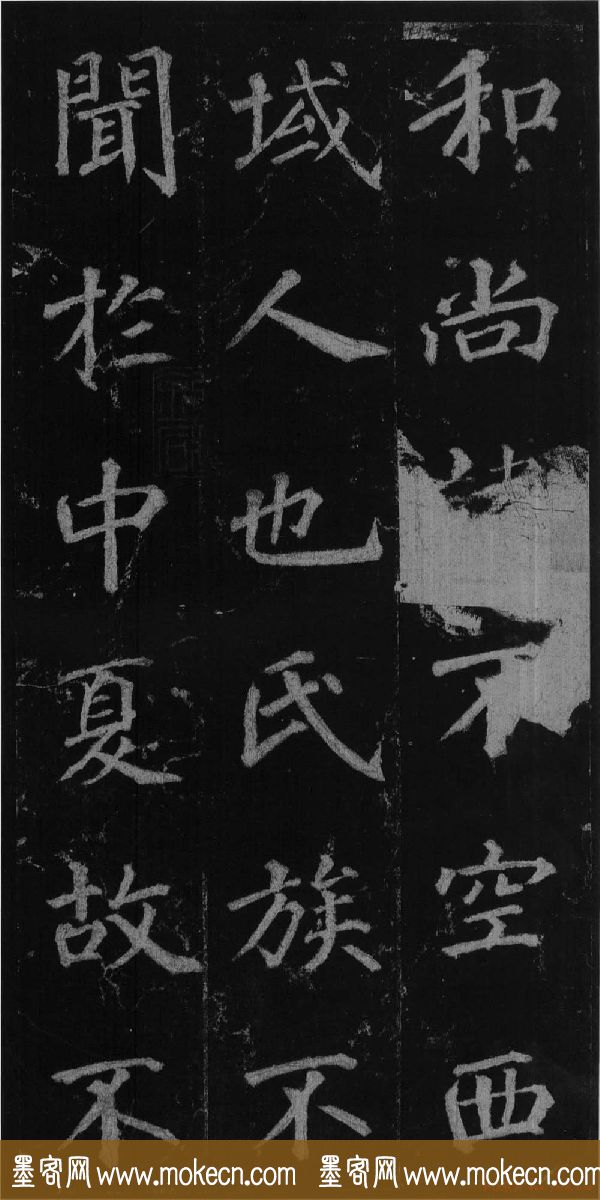 和尚諱不空西
域人也氏族不
聞於中夏故不
墨客网 www.mokecn.com 墨客网 www.mokecn.com